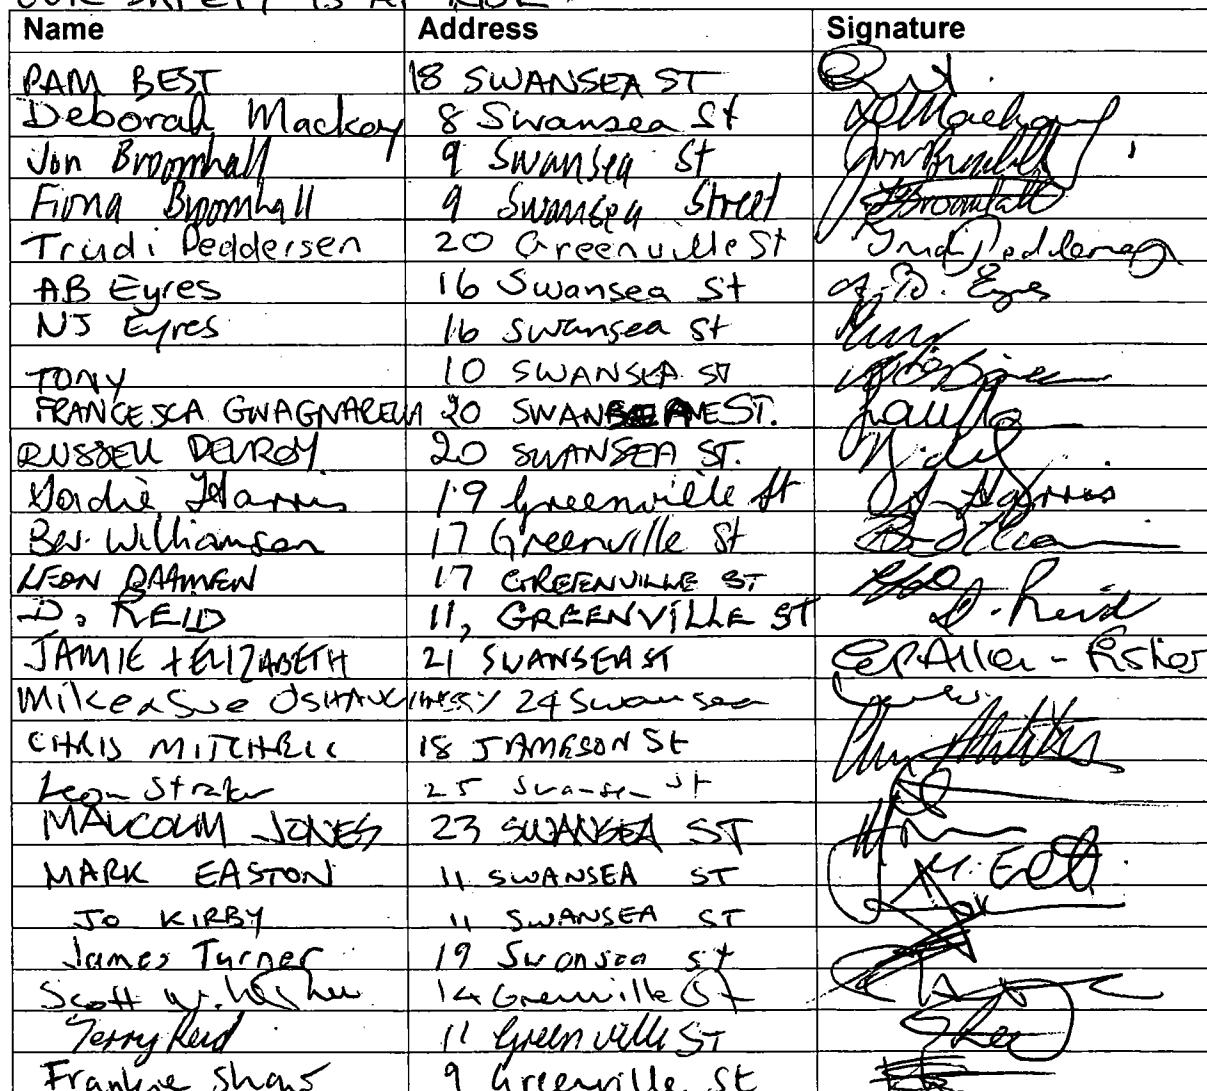 OUR SAFETY IS AT RISK
Name Address Signature
PAM BEST 18 SWANSEA ST
Deborah Mackay 8 Swansea St DMackay
Jon Broomhall 9 Swansea St Jon Broomhall
Fiona Broomhall 9 Swansea Street FBroomhall
Trudi Peddersen 20 Greenville St Trudi Peddersen
AB Eyres 16 Swansea St A. B. Eyres
NJ Eyres 16 Swansea St
TONY 10 SWANSEA ST
FRANCESCA 20 ST.
RUSSELL DELROY 20 SWANSEA ST.
Harris 19 Greenville St Harris
Bev. Williamson 17 Greenville St
LEON DAAMEN 17 GREENVILLE ST
D. REID 11, GREENVILLE ST D. Reid
JAMIE + ELIZABETH 21 SWANSEA ST
Mike & Sue 24 Swansea
CHRIS MITCHELL 18 JAMESON St
Leon Straker 25 Swansea St
MALCOLM JONES 23 SWANSEA ST
MARK EASTON 11 SWANSEA ST
JO KIRBY 11 SWANSEA ST
James Turner 19 Swansea St
Scott 14 Greenville St
Terry Reid 11 Greenville ST
Frankie 9 Greenville St